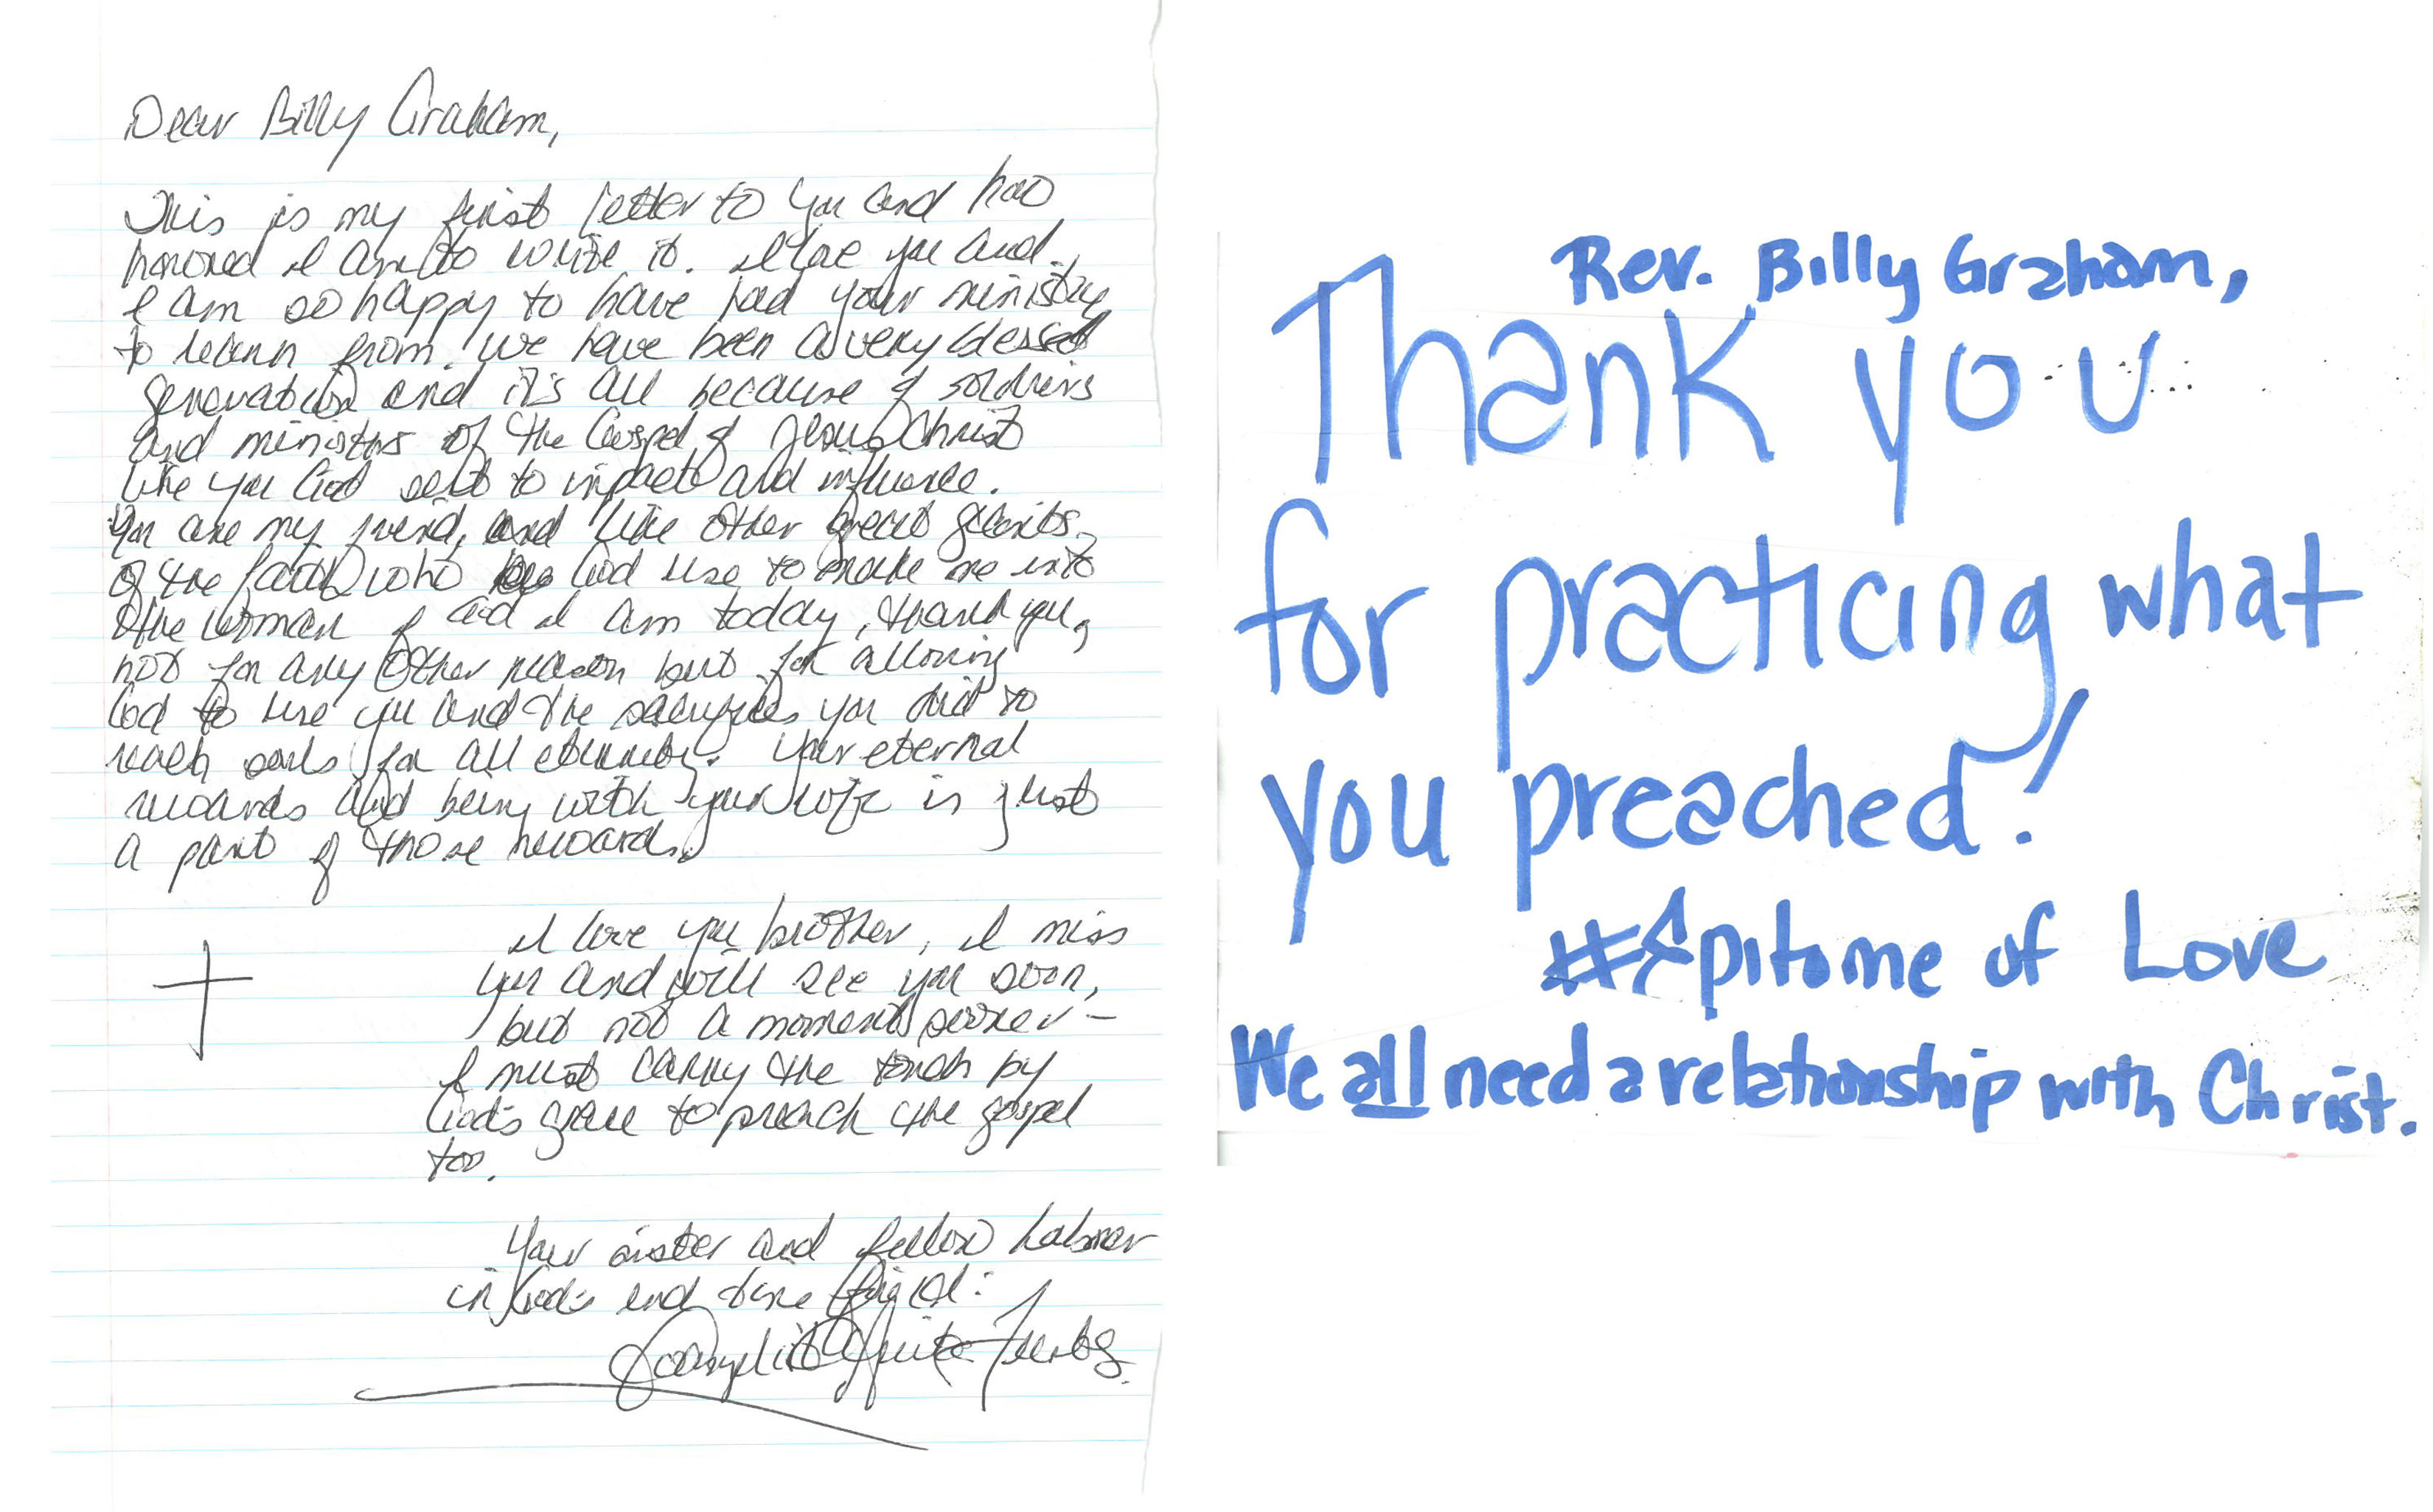 Dear Billy Graham,
This is my first letter to you and how
honored I am to write it. I love you and
I am so happy to have had your ministry
to learn from. We have been a very blessed
generation and it's all because of soldiers
and ministers of the Gospel of Jesus Christ
like you God sent to impact and influence.
You are my friend, and like other great giants
of the faith who God use to make me into
the woman of God I am today, thank you,
not for any other reason but for allowing
God to use you and the sacrifices you did to
reach souls for all eternity. Your eternal
rewards and being with your wife is just
a part of those rewards.
I love you brother, I miss
you and will see you soon,
but not a moment sooner -
I must carry the torch by
God's grace to preach the gospel
too.
Your sister and fellow laborer
in God's end time
Evangelist
Rev. Billy Graham,
Thank you
for practicing what
you preached!
#Epitome of Love
We all need a relationship with Christ.